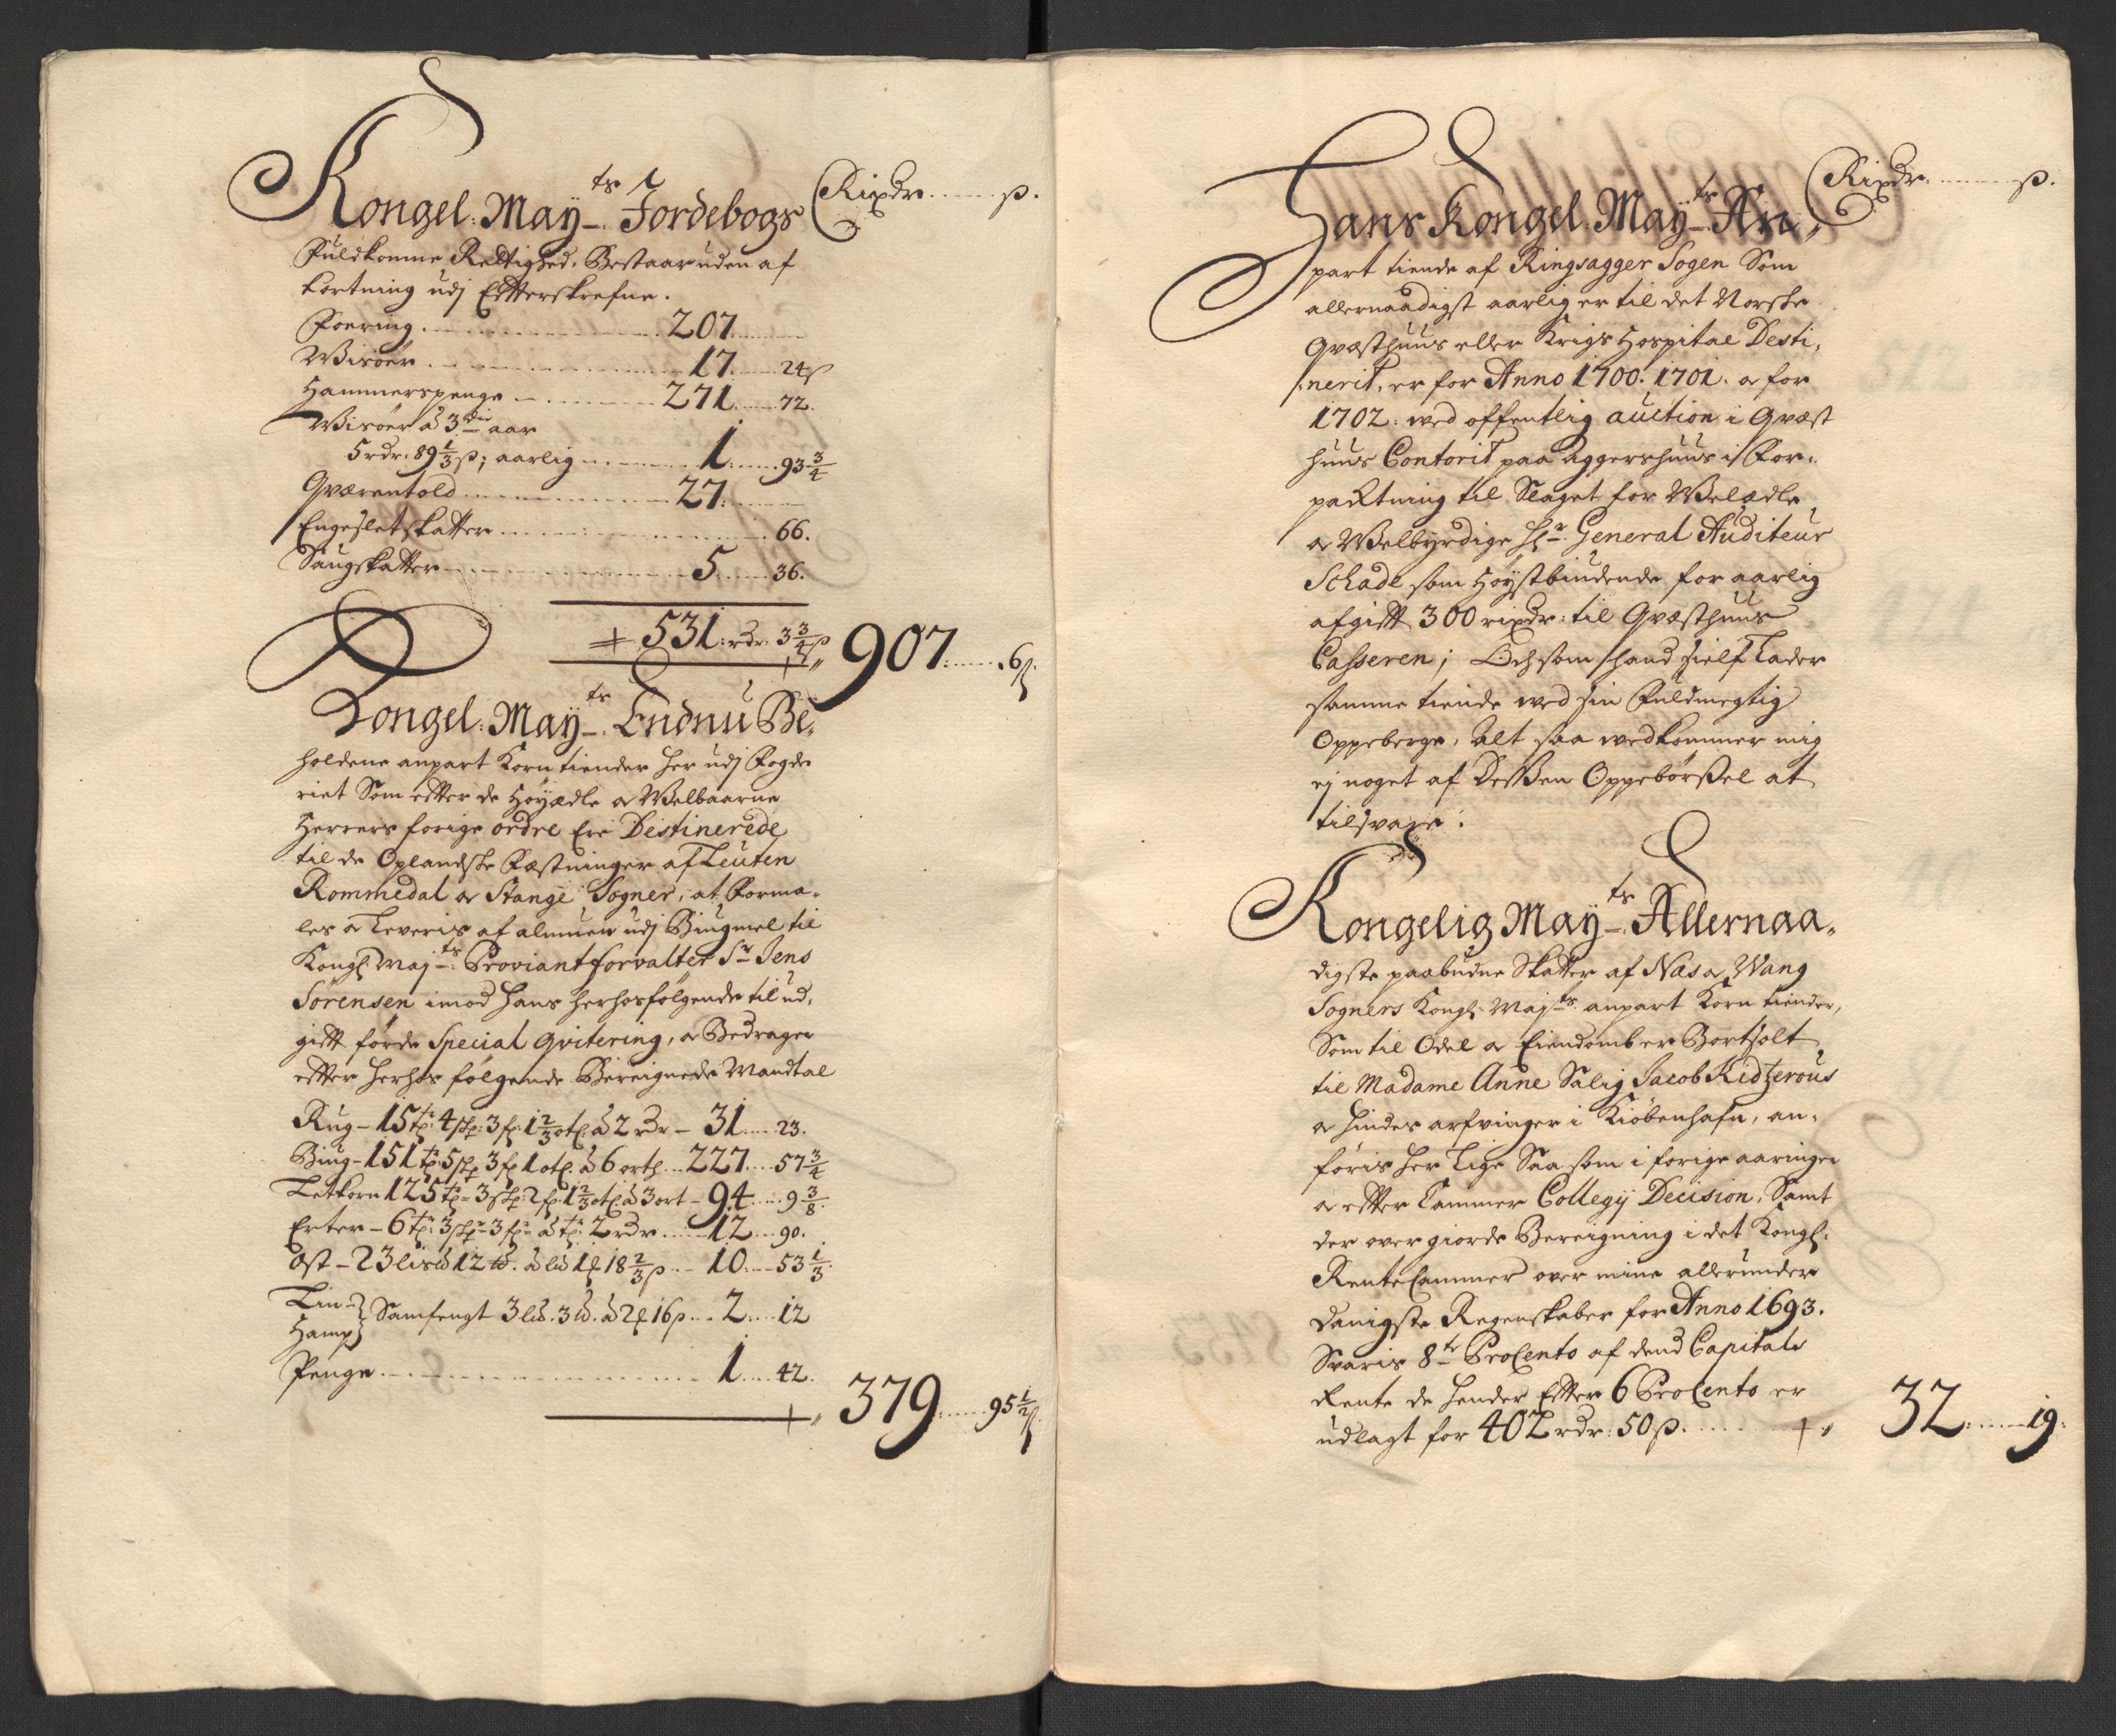 Kongel: May_ts Jordebogs Rixdr ...... ß.
Fuldkomne Rettighed. Bestaar uden af
kortning udj Effterskrefne.
Foering ........ 207 ......
Wisöer ........ 17 ...... 24ß
Hammerspenge ........ 271 ...... 72.
Wisöer à 3die aar
5 rdr. 89 1/3 ß; aarlig ........ 1 ...... 93 3/4
Qværntold ........ 27 ......
Engesletskatter ........ 66.
Saugskatter ........ 5 ...... 36.
531: rdr. 3 3/4 ß 907 ...... 6ß.
Kongel: May_ts Endnu Be,
holdene anpart Korn tiender her udj Fogde
riet Som effter de Höyædle a Welbaarne
Herrers forige ordre Ere Destinerede
til de Oplandske Fæstninger af Leuten
Rommedal a Stange Sogner, at Forma,
les a Leveris af almuen udj Biugmel til
Kongl: Maj_ts Proviantforvalter Sr Jens
Sörensen imod hans herhosfölgende til ud,
gifft förde Special qvitering, a Bedrager
effter herhos fölgende Bereignede Mandtal
Rug - 15 tr: 4 skp: 3 fr: 1 2/3 otl: à 2 rdr - 31 .... 23.
Biug - 151 tr: 5 skp 3 fr 1 otl. à 6 ort ... 227 .... 57 3/4
Letkorn 125 tr: 3 skp: 2 fr: 1 2/3 otl à 3 ort - 94 .... 9 3/8.
Erter - 6 tr: 3 skpr - 3 fr - à tr: 2 rdr ...... 12 ... 90.
Ost - 23 lis℔ 12 ℔. à l℔ 1 ꝑ 18 2/3 ß ... 10 .... 53 1/3.
Lin
Hamp Samfengt 3 l℔. 3 ℔. à 2 ꝑ 16 ß ... 2 .... 12
Penge ........ 1 .... 42.
379 ...... 95 1/2 ß
Hans Kongel. May_ts An, Rixdr. ...... ß.
part tiende af Ringsagger Sogen Som
allernaadigst aarlig er til det Norske
Qvæsthuus eller Krigs Hospital Desti,
nerit, er for Anno 1700. 1701. a for
1702. wed offentlig auction i Qvæst
huus Contorit paa Aggershuus i For,
pagtning til Slaget for Welædle
a Welbyrdige Hr. General Auditeur
Schade som Höystbiudende for aarlig
afgifft 300 rixdr: til Qvæsthuus
Casseren; Och som hand sielf Lader
samme tiende wed sin Fuldmegtig
Oppeberge, Alt saa wedkommer mig
ej noget af Dessen Oppebörsel at
tilsvare.
Kongelig May_ts Allernaa,
digste paabudne Skatter af Næs a Wang
Sogners Kongl: Maj_ts anpart Korn tiender,
Som til Odel a Eiendomb er Bortsolt
til Madame Anne Salig Jacob Kidtzerous
a hindes arfvinger i Kiöbenhafn, an,
föris her Lige Saa som i forige aaringer
a effter Cammer Collegij Decision, Samt
der over giorde Bereigning i det Kongl:
RenteCammer over mine allerunder
danigste Regenskaber for Anno 1693.
Svaris 8te ProCento af dend Capitals
Rente de hender Effter 6 ProCento er
udlagt for 402 rdr: 50 ß. ..... 32 ...... 19.